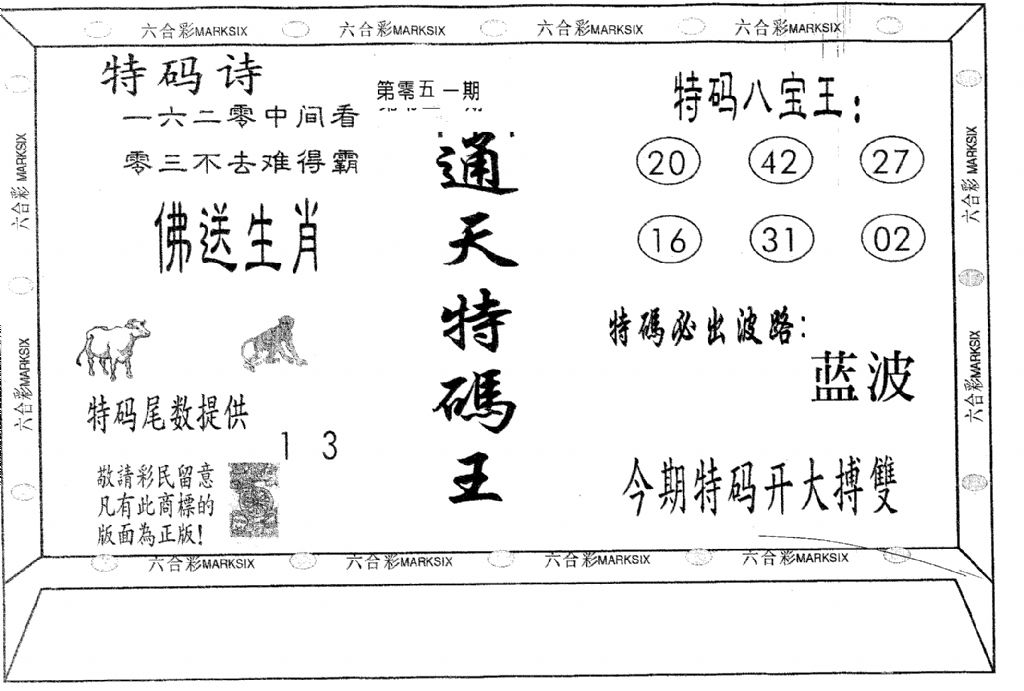 六合彩MARKSIX 六合彩MARKSIX 六合彩MARKSIX 六合彩MARKSIX
六合彩MARKSIX
六合彩MARKSIX
特码诗
一六二零中间看
零三不去难得霸
佛送生肖
特码尾数提供
1 3
敬請彩民留意
凡有此商標的
版面為正版!
第零五一期
通天特碼王
特码八宝王:
20 42 27
16 31 02
特碼必出波路:
蓝波
今期特码开大搏雙
六合彩MARKSIX
六合彩MARKSIX
六合彩MARKSIX 六合彩MARKSIX 六合彩MARKSIX 六合彩MARKSIX